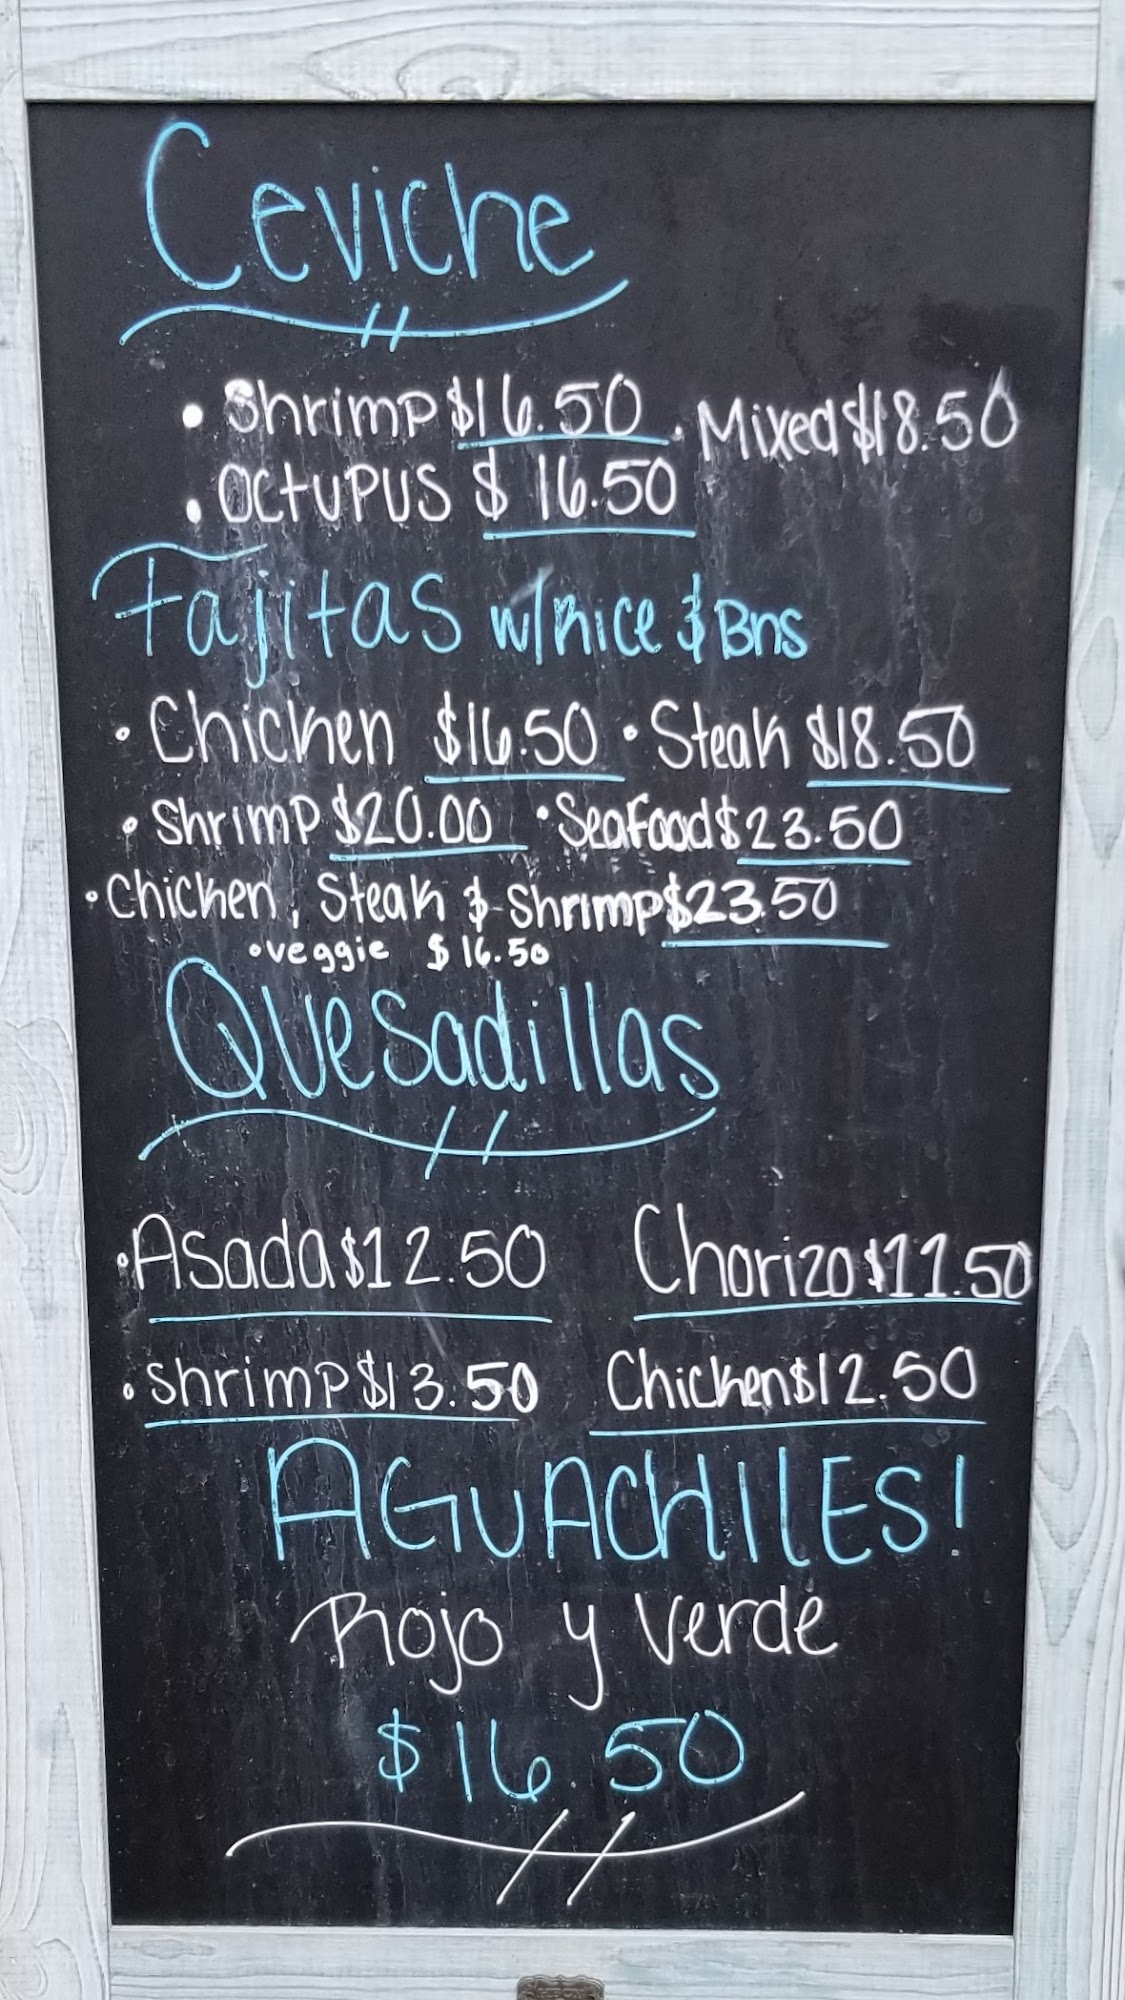 Ceviche
• Shrimp $16.50 • Mixed $18.50
• Octupus $16.50
Fajitas w/Rice & Bns
• Chicken $16.50 • Steak $18.50
• Shrimp $20.00 • Seafood $23.50
• Chicken, Steak & Shrimp $23.50
• veggie $16.50
Quesadillas
• Asada $12.50 Chorizo $11.50
• Shrimp $13.50 Chicken $12.50
AGUACHILES!
Rojo y Verde
$16.50